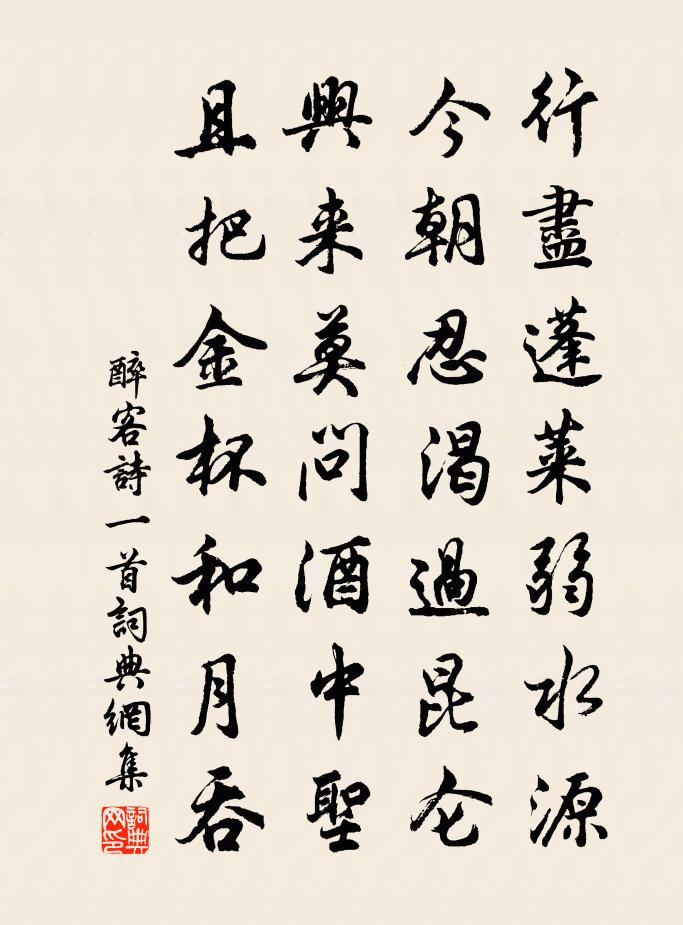 行盡蓬萊弱水源
今朝忍渴過昆仑
興来莫問酒中聖
且把金杯和月吞
醉客詩一首詞典網集
詞典網印